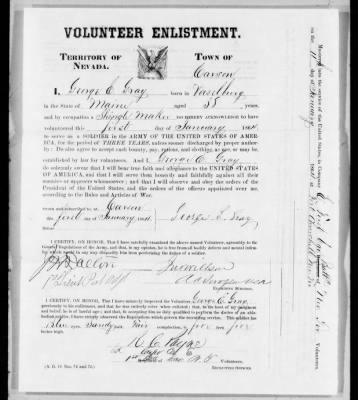 VOLUNTEER ENLISTMENT.
TERRITORY OF
NEVADA.
TOWN OF
Carson
I, George E. Gray, born in Vassalboro
in the State of Maine aged 38 years,
and by occupation a Shingle Maker DO HEREBY ACKNOWLEDGE to have
volunteered this first day of January 1864,
to serve as a SOLDIER IN THE ARMY OF THE UNITED STATES OF AMER-
ICA, for the period of THREE YEARS, unless sooner discharged by proper author-
ity: Do also agree to accept such bounty, pay, rations, and clothing, as are or may be,
established by law for volunteers. And I, George E. Gray,
do solemnly swear that I will bear true faith and allegiance to the UNITED STATES
OF AMERICA, and that I will serve them honestly and faithfully against all their
enemies or opposers whomsoever; and that I will observe and obey the orders of the
President of the United States and the orders of the officers appointed over me,
according to the Rules and Articles of War.
Sworn and subscribed to, at Carson
this first day of January 1864
George E. Gray
I CERTIFY, ON HONOR, That I have carefully examined the above named Volunteer, agreeably to the
General Regulations of the Army, and that, in my opinion, he is free from all bodily defects and mental infirm-
ity which would in any way disqualify him from performing the duties of a soldier.
EXAMINING SURGEON.
I CERTIFY, ON HONOR, That I have minutely inspected the Volunteer, George E. Gray,
previously to his enlistment, and that he was entirely sober when enlisted; that, to the best of my judgment
and belief, he is of lawful age; and that, in accepting him as duly qualified to perform the duties of an able-
bodied soldier, I have strictly observed the Regulations which govern the recruiting service. This soldier has
Blue eyes, Sandy hair, Fair complexion, is five feet five
inches high.
Volunteers,
RECRUITING OFFICER.
(A. G. O. Nos. 74 and 75.)
Mustered into the service of the United States, in Company
on the 11 day of January, 1864,
Volunteers,